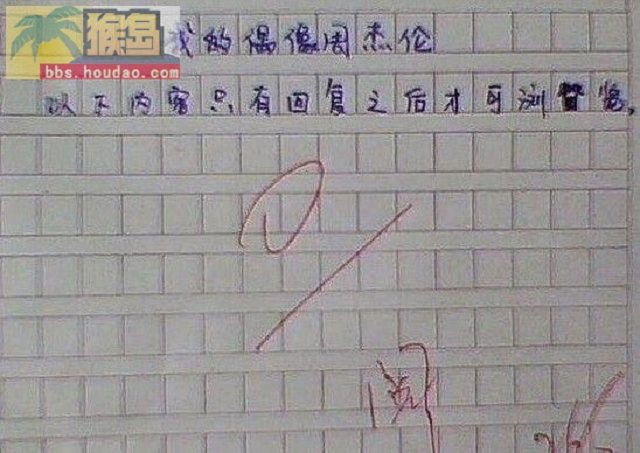 猴岛
bbs.houdao.com
我的偶像周杰伦
以下内容只有回复之后才可浏览。
阅